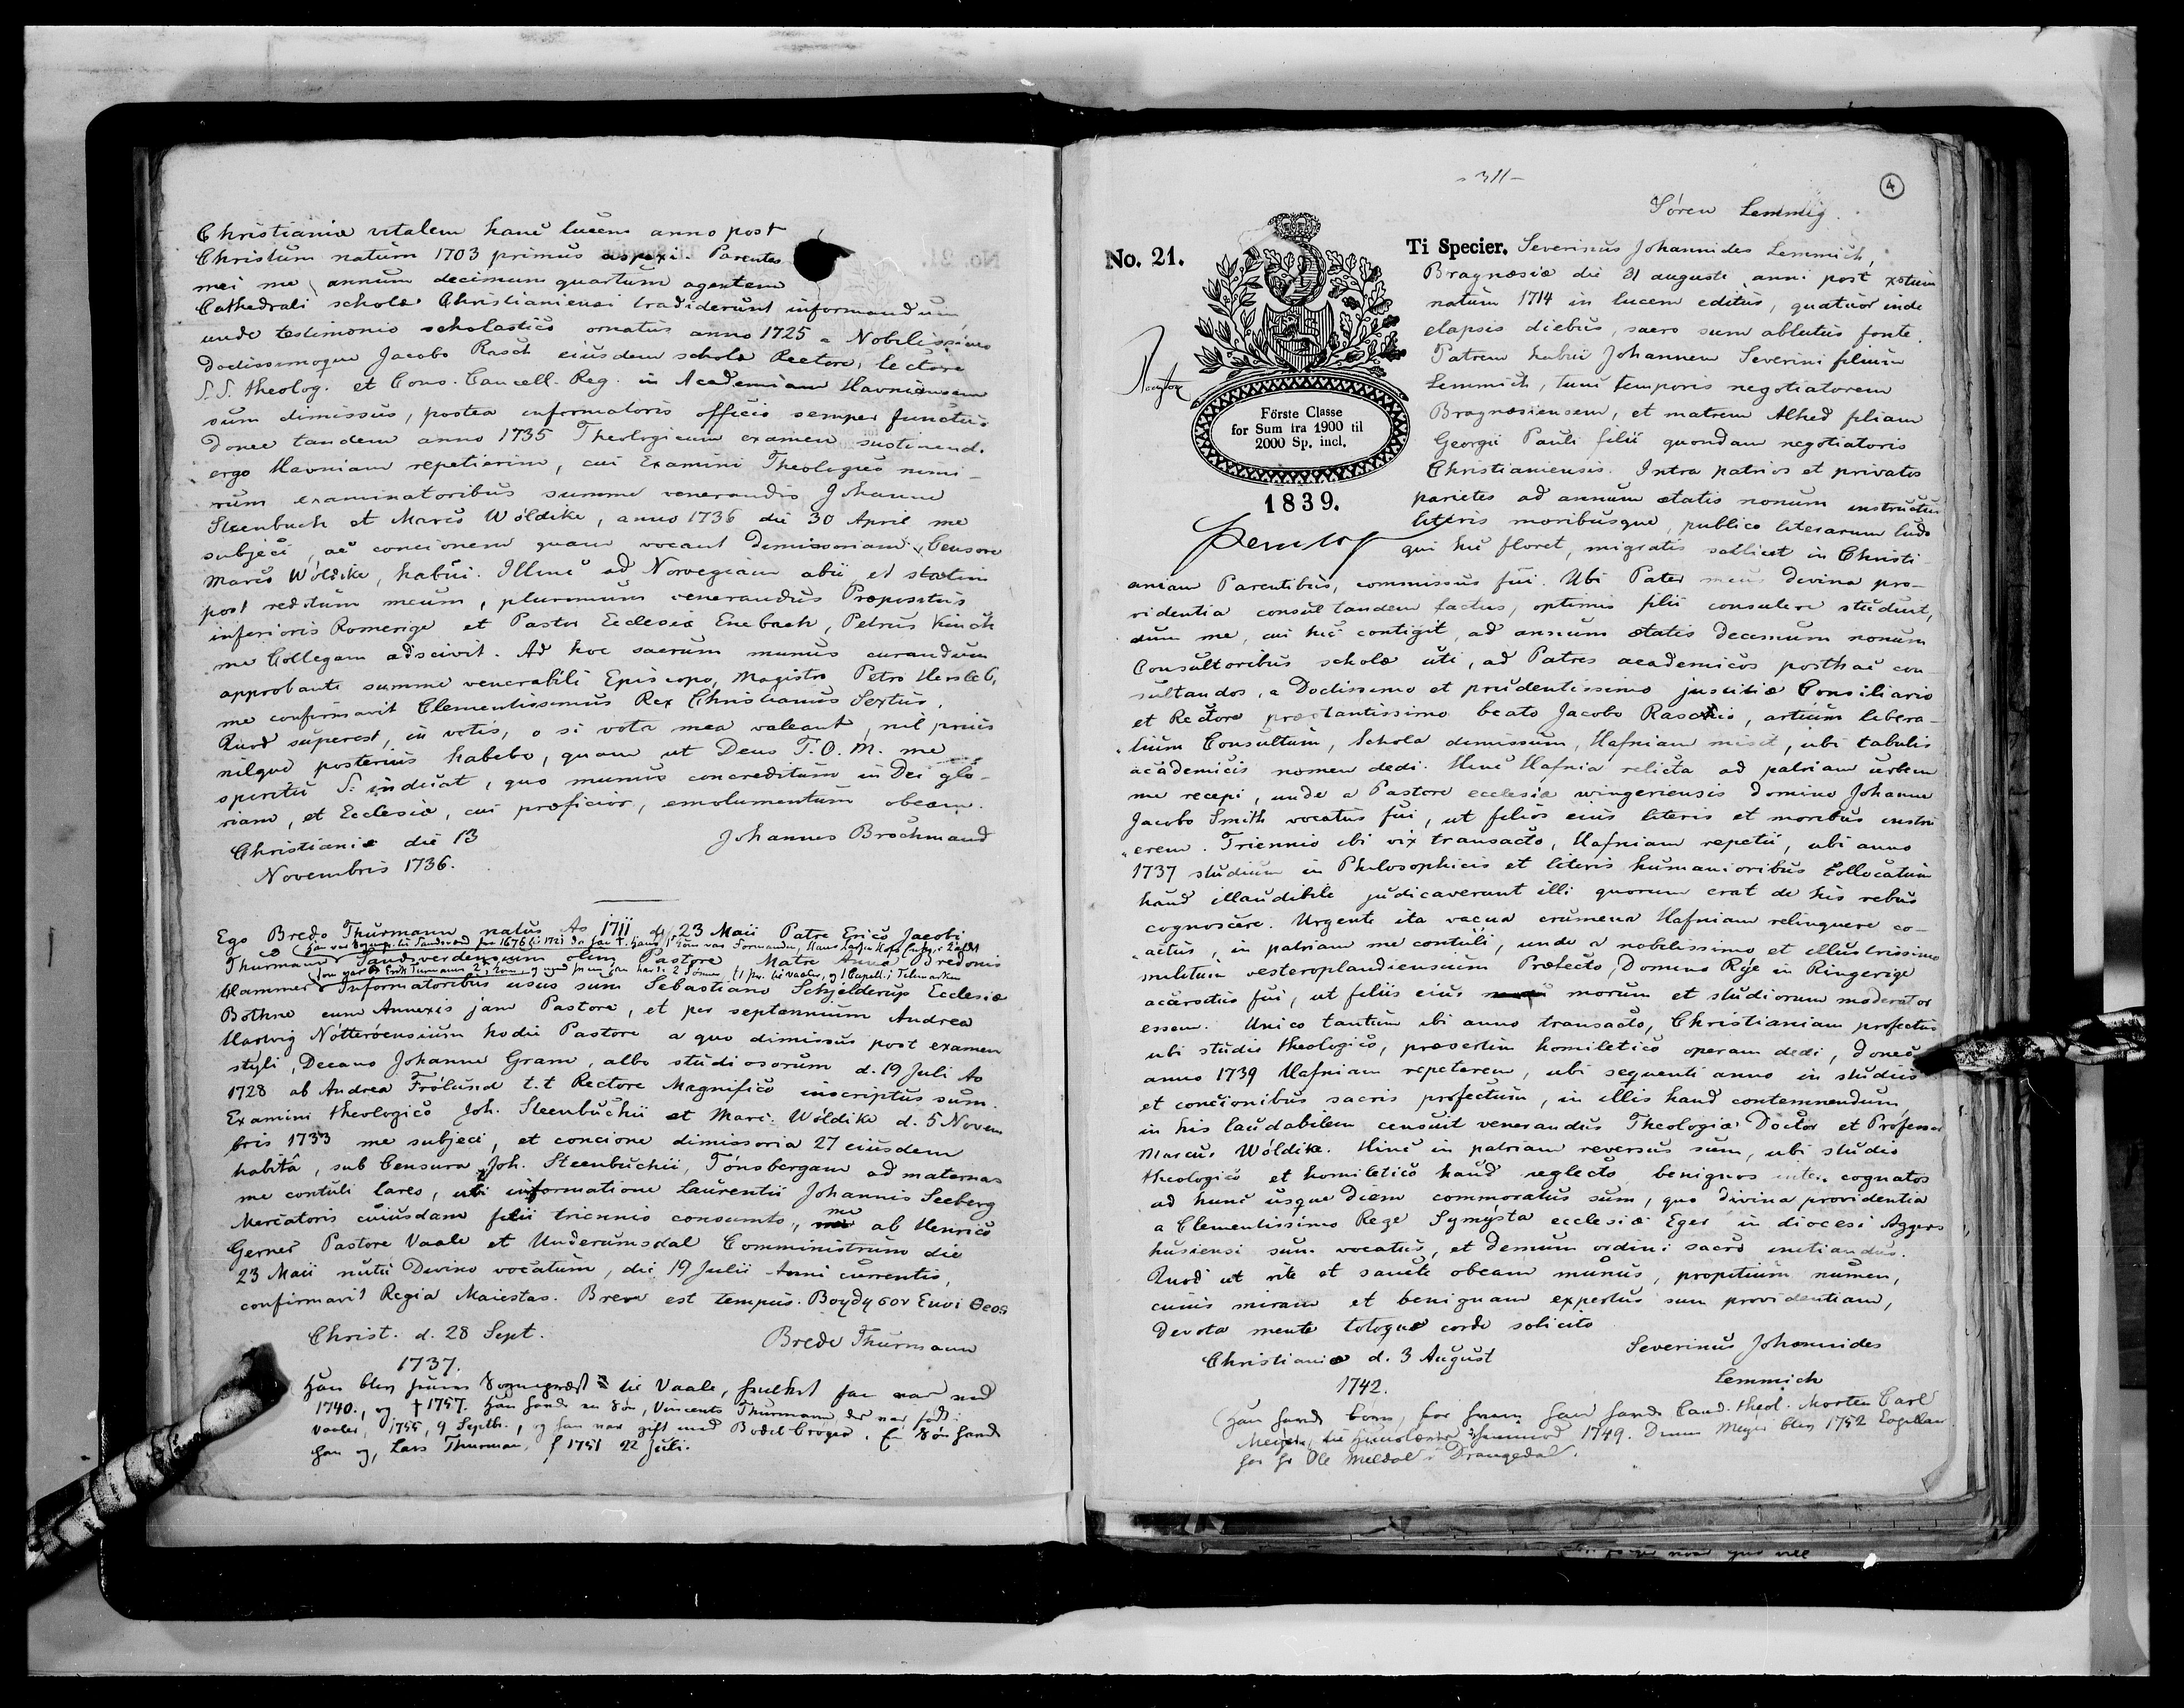 Christianiæ vitalem hanc lucem anno post
Christum natum 1703 primus aspexi. Parentes
mei me annum decimum quartum agentem
Cathedrali scholæ Christianiensi tradiderunt informandum,
unde testimonio scholastico ornatus anno 1725 a Nobilissimo
Doctissimoque Jacobo Rasch eiusdem scholæ Rectore, lectore
S.S. theolog. et Cons. Cancell. Reg. in Academiam Havniensem
sum dimissus, postea informatoris officio semper functus
donec tandem anno 1735 Theologicum examen sustinend.
ergo Havniam repetierim, cui Examini Theologico nimi-
rum examinatoribus summe venerandis Johanne
Steenbuch et Marco Wöldike, anno 1736 die 30 April me
subjeci, ac concionem quam vocant Dimissoriam, Censore
Marco Wöldike, habui. Illinc ad Norvegiam abii et statim
post reditum meum, plurimum venerandus Præpositus
inferioris Romerige et Pastor Ecclesiæ Enebach, Petrus Kinch
me Collegam adscivit. Ad hoc sacrum munus curandum
approbante summe venerabili Episcopo, Magistro Petro Hersleb,
me confirmavit Clementissimus Rex Christianus Sextus.
Quod superest, in votis, o si vota mea valeant, nil prius
nilque posterius habebo, quam ut Deus T.O.M. me
spiritu S. induat, quo munus concreditum in Dei glo-
riam, et Ecclesiæ, cui præficior, emolumentum obeam.
Christianiæ die 13 Johannes Brochmand
Novembris 1736.
Ego Bredo Thurmann natus Ao 1711 d. 23 Maii Patre Erico Jacobi
Thurmann Sandsverdensium olim Pastore Matre Anna Bredonis
Hammer Informatoribus usus sum Sebastiano Schjelderup Ecclesiæ
Bothne cum Annexis jam Pastore, et per septennium Andrea
Hartvig Nötteröensium hodie Pastore a quo dimissus post examen
styli, Decano Johanne Gram, albo studiosorum d. 19 Juli Ao
1728 ab Andrea Frölund t.t Rectore Magnifico inscriptus sum.
Examini theologico Joh. Steenbuchii et Marc. Wöldike d. 5 Novem
bris 1733 me subjeci, et concione dimissoria 27 eiusdem
habitâ, sub Censura Joh. Steenbuchii, Tönsbergam ad maternas
me contuli lares, ubi informatione Laurentii Johannis Seeberg
Mercatoris cuiusdam filii triennio consumto, me ab Henrico
Gerner Pastore Vaale et Underumsdal Comministrum die
23 Maii nutu Divino vocatum, die 19 Julii Anni currentis,
confirmavit Regia Maiestas. Breve est tempus. Βοηθησον Εμοι Θεος
Christ. d. 28 Sept. Brede Thurmann
1737.
Han blev
1740, og † 1757. Han havde en Sön, Vincents Thurmann, der var född i
Vaaler, 1755, 9 Septbr., og han var gift med Bodel Cröger. En Sön havde
han og, Lars Thurman, f 1751 22 Juli.
- 311 -
4
Sören Lemmig.
No. 21.
Ti Specier. Severinus Johannides Lemmich,
Bragnæsiæ die 31 augusti anni post xstum
natum 1714 in lucem editus, quatuor inde
elapsis diebus, sacro sum ablutus fonte.
Patrem habui Johannem Severini filium
Lemmich, tunc temporis negotiatorem
Bragnæsiensem, et matrem Alhed filiam
Georgii Pauli filii quondam negotiatoris
Christianiensis. Intra patrios et privatos
parietes ad annum ætatis nonum instructus
literis moribusque, publico literarum ludo
Förste Classe
for Sum fra 1900 til
2000 Sp. incl.
1839.
qui hic floret, migratis scilicet in Christi-
aniam Parentibus, commissus fui. Ubi Pater meus divina pro-
videntia consul tandem factus, optimis filii consulere studuit,
dum me, cui hic contigit, ad annum ætatis decimum nonum
Consultoribus scholæ uti, ad Patres academicos posthac con-
sultandos, a Doctissimo et prudentissimo justitiæ Consiliario
et Rectore præstantissimo beato Jacobo Raschio, artium libera-
lium Consultum, Schola dimissum, Hafniam misit, ubi tabulis
academicis nomen dedi. Hinc Hafnia relicta ad patriam urbem
me recepi, unde a Pastore ecclesiæ wingeriensis Domino Johanne
Jacobo Smith vocatus fui, ut filios eius literis et moribus instru
erem. Triennio ibi vix transacto, Hafniam repetii, ubi anno
1737 studium in Philosophicis et literis humanioribus collocatum
haud illaudibile judicaverunt illi quorum erat de his rebus
cognoscere. Urgente ita vacua crumena Hafniam relinquere co-
actus, in patriam me contuli, unde a nobelissimo et illustrissimo
militum vesteroplandiensium Præfecto, Domino Rÿe in Ringerige
acarsitus fui, ut filiis eius morum et studiorum moderator
essem. Unico tantum ibi anno transacto, Christianiam profectus
ubi studio theologico, præsertim homiletico operam dedi, donec
anno 1739 Hafniam repeterem, ubi sequenti anno in studiis
et concionibus sacris profectum, in illis haud contemnendum,
in his laudabilem censuit venerandus Theologiæ Doctor et Professor
Marcus Wöldike. Hinc in patriam reversus sum, ubi studio
theologico et homiletico haud neglecto benignos inter cognatos
ad hunc usque diem commoratus sum, quo divina providentia
a Clementissimo Rege Symysta ecclesiæ Eger in diocesi Aggers
husiensi sum vocatus, et demum ordini sacro initiandus.
Quod ut rite et sancte obeam munus, propitium numen,
cuius miram et benignam expertus sum providentiam,
devota mente totoque corde solicito
Christianiæ d. 3 August Severinus Johannides
1742. Lemmich
Cand. theol. Morten Carl
1749. Denne Meyer blev 1752 Capellan
for Hr Ole Meldal i Drangedal.